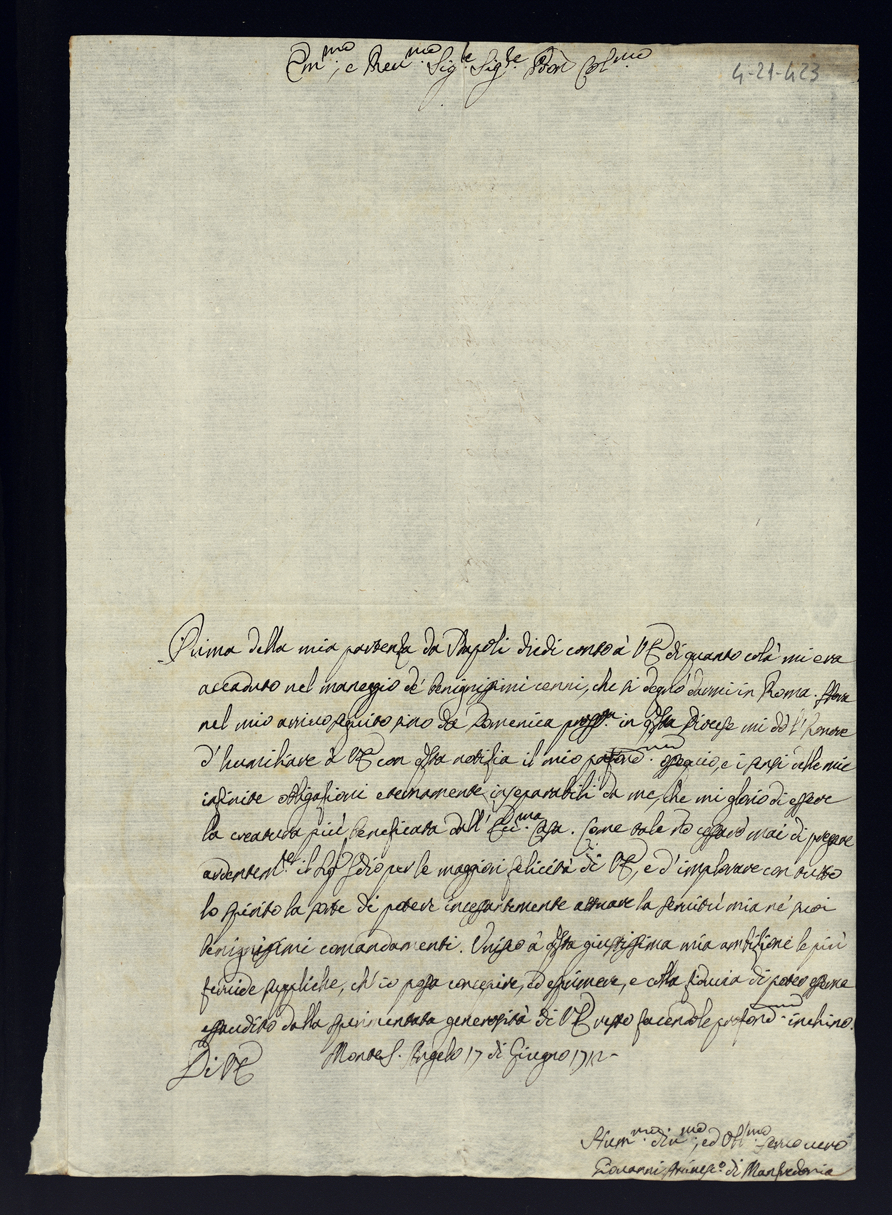 Em.mo, e Reu.mo Sig.re Sig.re Prōn Col.mo
4-21-423
Prima della mia partenza da Napoli diedi conto à VE di quanto colà mi era
accaduto nel maneggio de' benignissimi cenni, che si degnò darmi in Roma.
nel mio arriuo seguito sino da Domenica in q̃sta Diocese mi dò l'honore
d'humiliare à VE con q̃sta notizia il mio profond.mo ossequio, e i sensi delle mie
infinite obligazioni eternamente inseparabili da me, che mi glorio di essere
la creatura più beneficata dall' Ecc.ma Casa. Come tale nō cesserò mai di pregare
ardentem.te il Sig.r Idio per le maggiori felicità di VE, e d'implorare con tutto
lo spirito la sorte di potere incessantemente attuare la seruitù mia ne' suoi
benignissimi comandamenti. Unisco à q̃sta giustissima mia ambizione le più
feruide suppliche, ch'io possa concepire, ed esprimere, e colla fiducia di poter essere
essaudito dalla sperimentata generosità di VE resto facendole profond.mo inchino.
Di VE Monte S. Angelo 17 di Giugno 1712
Hum.mo Diu.mo, ed Obl.mo Seruo uero
Giouanni Arciuesc.o di Manfredonia